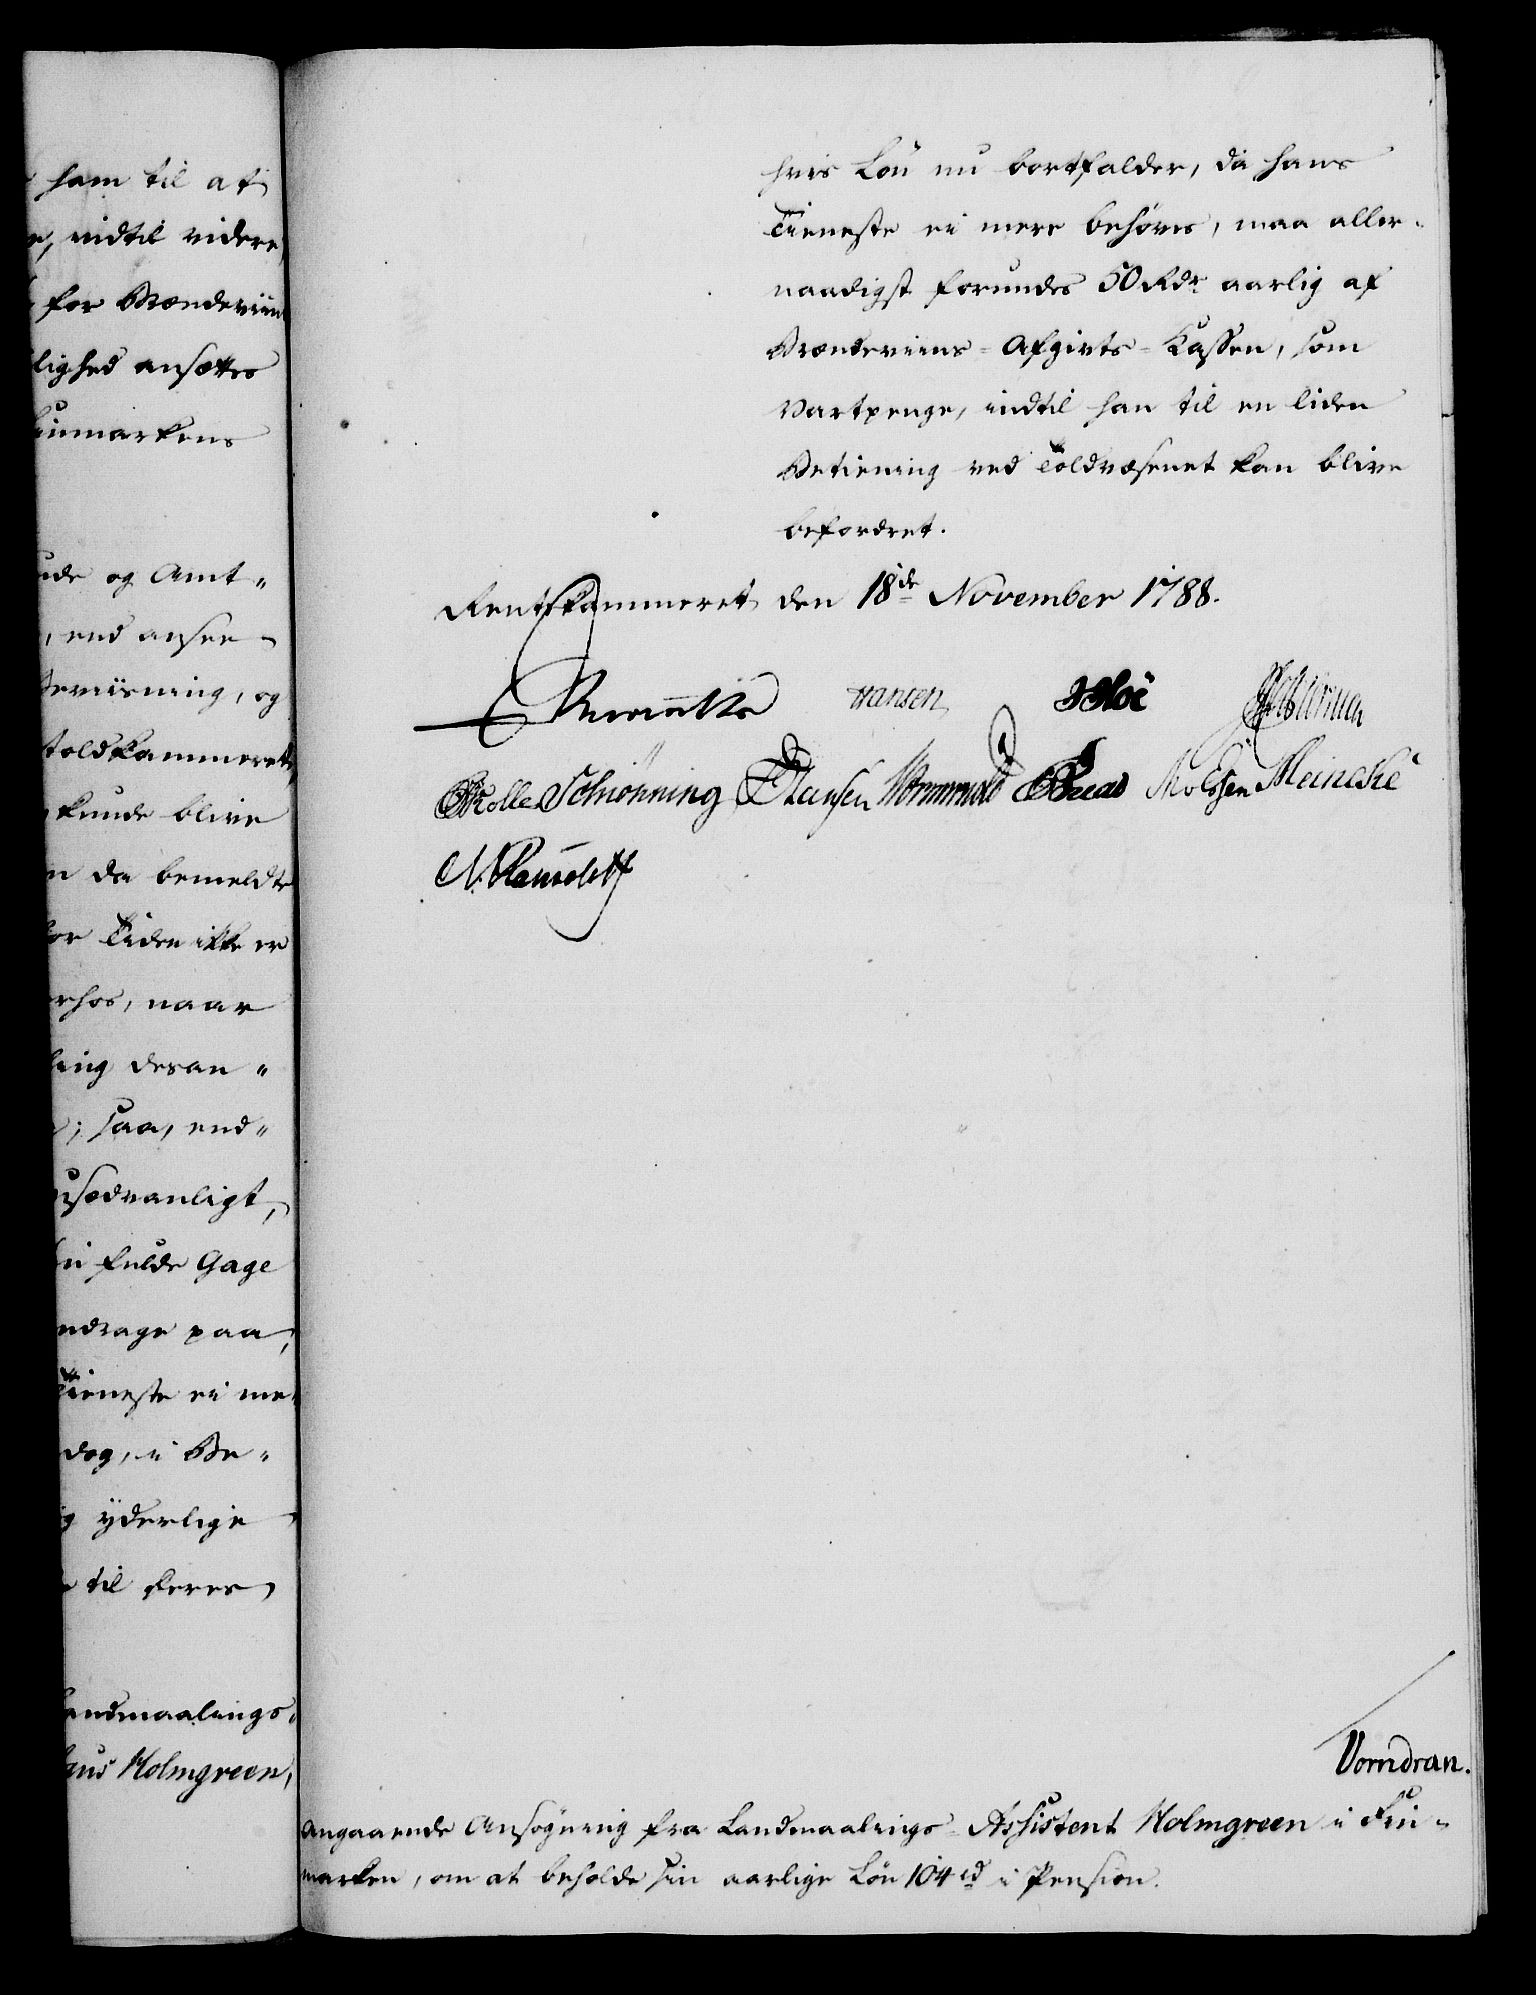 ham til at
indtil videre
for Brændeviin
lighed ansættes
inmarkens
og Amt-
end ansee
eviisning, og
toldkammeret
kunde blive
da bemeldte
Tiden ikke er
naar
ling desan-
; saa, end-
usædvanligt,
fulde Gage
ndrage paa,
Tieneste ei me-
dog, i Be-
yderlige
til deres
andmaalings-
Holmgreen,
hvis Løn nu bortfalder, da hans
Tieneste ei mere behøves, maa aller-
naadigst forundes 50 Rdr aarlig af
Brændeviins-Afgivts-Kassen, som
Vartpenge, indtil han til en liden
Betiening ved Toldvæsenet kan blive
befordret.
Rentekammeret den 18de November 1788.
Hansen
Schiønning Hansen Wormwold Meincke
Vorndran.
Angaaende Ansøgning fra Landmaalings-Assistent Holmgreen i Fin-
marken, om at beholde sin aarlige Løn 104 rd i Pension.